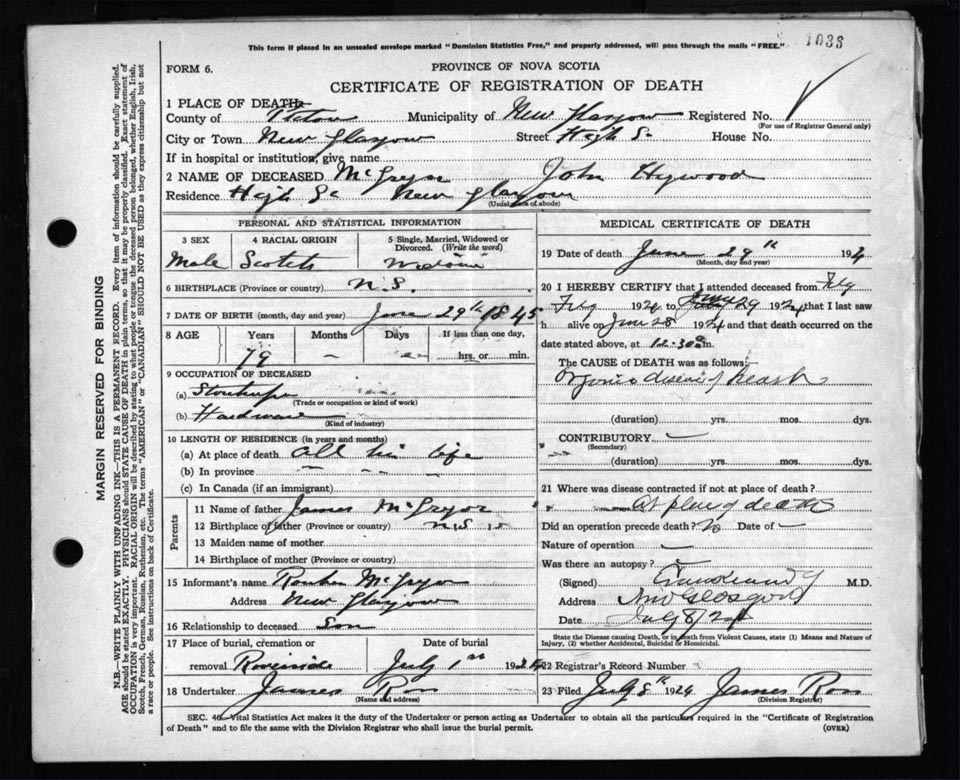 1038
This form if placed in an unsealed envelope marked "Dominion Statistics Free," and properly addressed, will pass through the mails "FREE."
FORM 6.
PROVINCE OF NOVA SCOTIA
CERTIFICATE OF REGISTRATION OF DEATH
MARGIN RESERVED FOR BINDING
N.B.—WRITE PLAINLY WITH UNFADING INK—THIS IS A PERMANENT RECORD. Every item of information should be carefully supplied.
AGE should be stated EXACTLY. PHYSICIANS should STATE CAUSE OF DEATH in plain terms, so that it may be properly classified. Exact statement of
OCCUPATION is very important. RACIAL ORIGIN will be described by stating to what people or tongue the deceased person belonged, whether English, Irish,
Scotch, French, German, Russian, Ruthenian, etc. The terms "AMERICAN" or "CANADIAN" SHOULD NOT BE USED as they express citizenship but not
a race or people. See instructions on back of Certificate.
1 PLACE OF DEATH
County of Pictou Municipality of New Glasgow Registered No.
(For use of Registrar General only)
City or Town New Glasgow Street High St House No.
If in hospital or institution, give name
2 NAME OF DECEASED McGregor John Heywood
Residence High St New Glasgow
(Usual place of abode)
PERSONAL AND STATISTICAL INFORMATION
3 SEX Male
4 RACIAL ORIGIN Scotch
5 Single, Married, Widowed or Divorced. (Write the word)
6 BIRTHPLACE (Province or country) N.S.
7 DATE OF BIRTH (month, day and year) June 29th 1845
8 AGE Years Months Days If less than one day,
79 – – hrs. or min.
9 OCCUPATION OF DECEASED
(a)
(Trade or occupation or kind of work)
(b) Hardware
(Kind of industry)
10 LENGTH OF RESIDENCE (in years and months)
(a) At place of death all his life
(b) In province – – –
(c) In Canada (if an immigrant)
Parents
11 Name of father James McGregor
12 Birthplace of father (Province or country) N.S.
13 Maiden name of mother
14 Birthplace of mother (Province or country)
15 Informant's name McGregor
Address New Glasgow
16 Relationship to deceased Son
17 Place of burial, cremation or removal Riverside
Date of burial July 1st 1924
18 Undertaker James Ross
(Name and address)
MEDICAL CERTIFICATE OF DEATH
19 Date of death June 29th 1924
(Month, day and year)
20 I HEREBY CERTIFY that I attended deceased from
1924 to June 29 1924 that I last saw
h alive on June 28 1924 and that death occurred on
date stated above, at 12.30 a m.
The CAUSE OF DEATH was as follows:
Organic disease of heart
(duration) yrs. mos. dys.
CONTRIBUTORY –
(Secondary)
(duration) yrs. mos. dys.
21 Where was disease contracted if not at place of death?
At place of death
Did an operation precede death? No Date of –
Nature of operation –
Was there an autopsy? –
(Signed) M.D.
Address New Glasgow
Date July 8/24
State the Disease causing Death, or in death from Violent Causes, state (1) Means and Nature of
Injury, (2) whether Accidental, Suicidal or Homicidal.
22 Registrar's Record Number
23 Filed July 8th 1924 James Ross
(Division Registrar)
SEC. 46. Vital Statistics Act makes it the duty of the Undertaker or person acting as Undertaker to obtain all the particulars required in the "Certificate of Registration
of Death" and to file the same with the Division Registrar who shall issue the burial permit. (OVER)